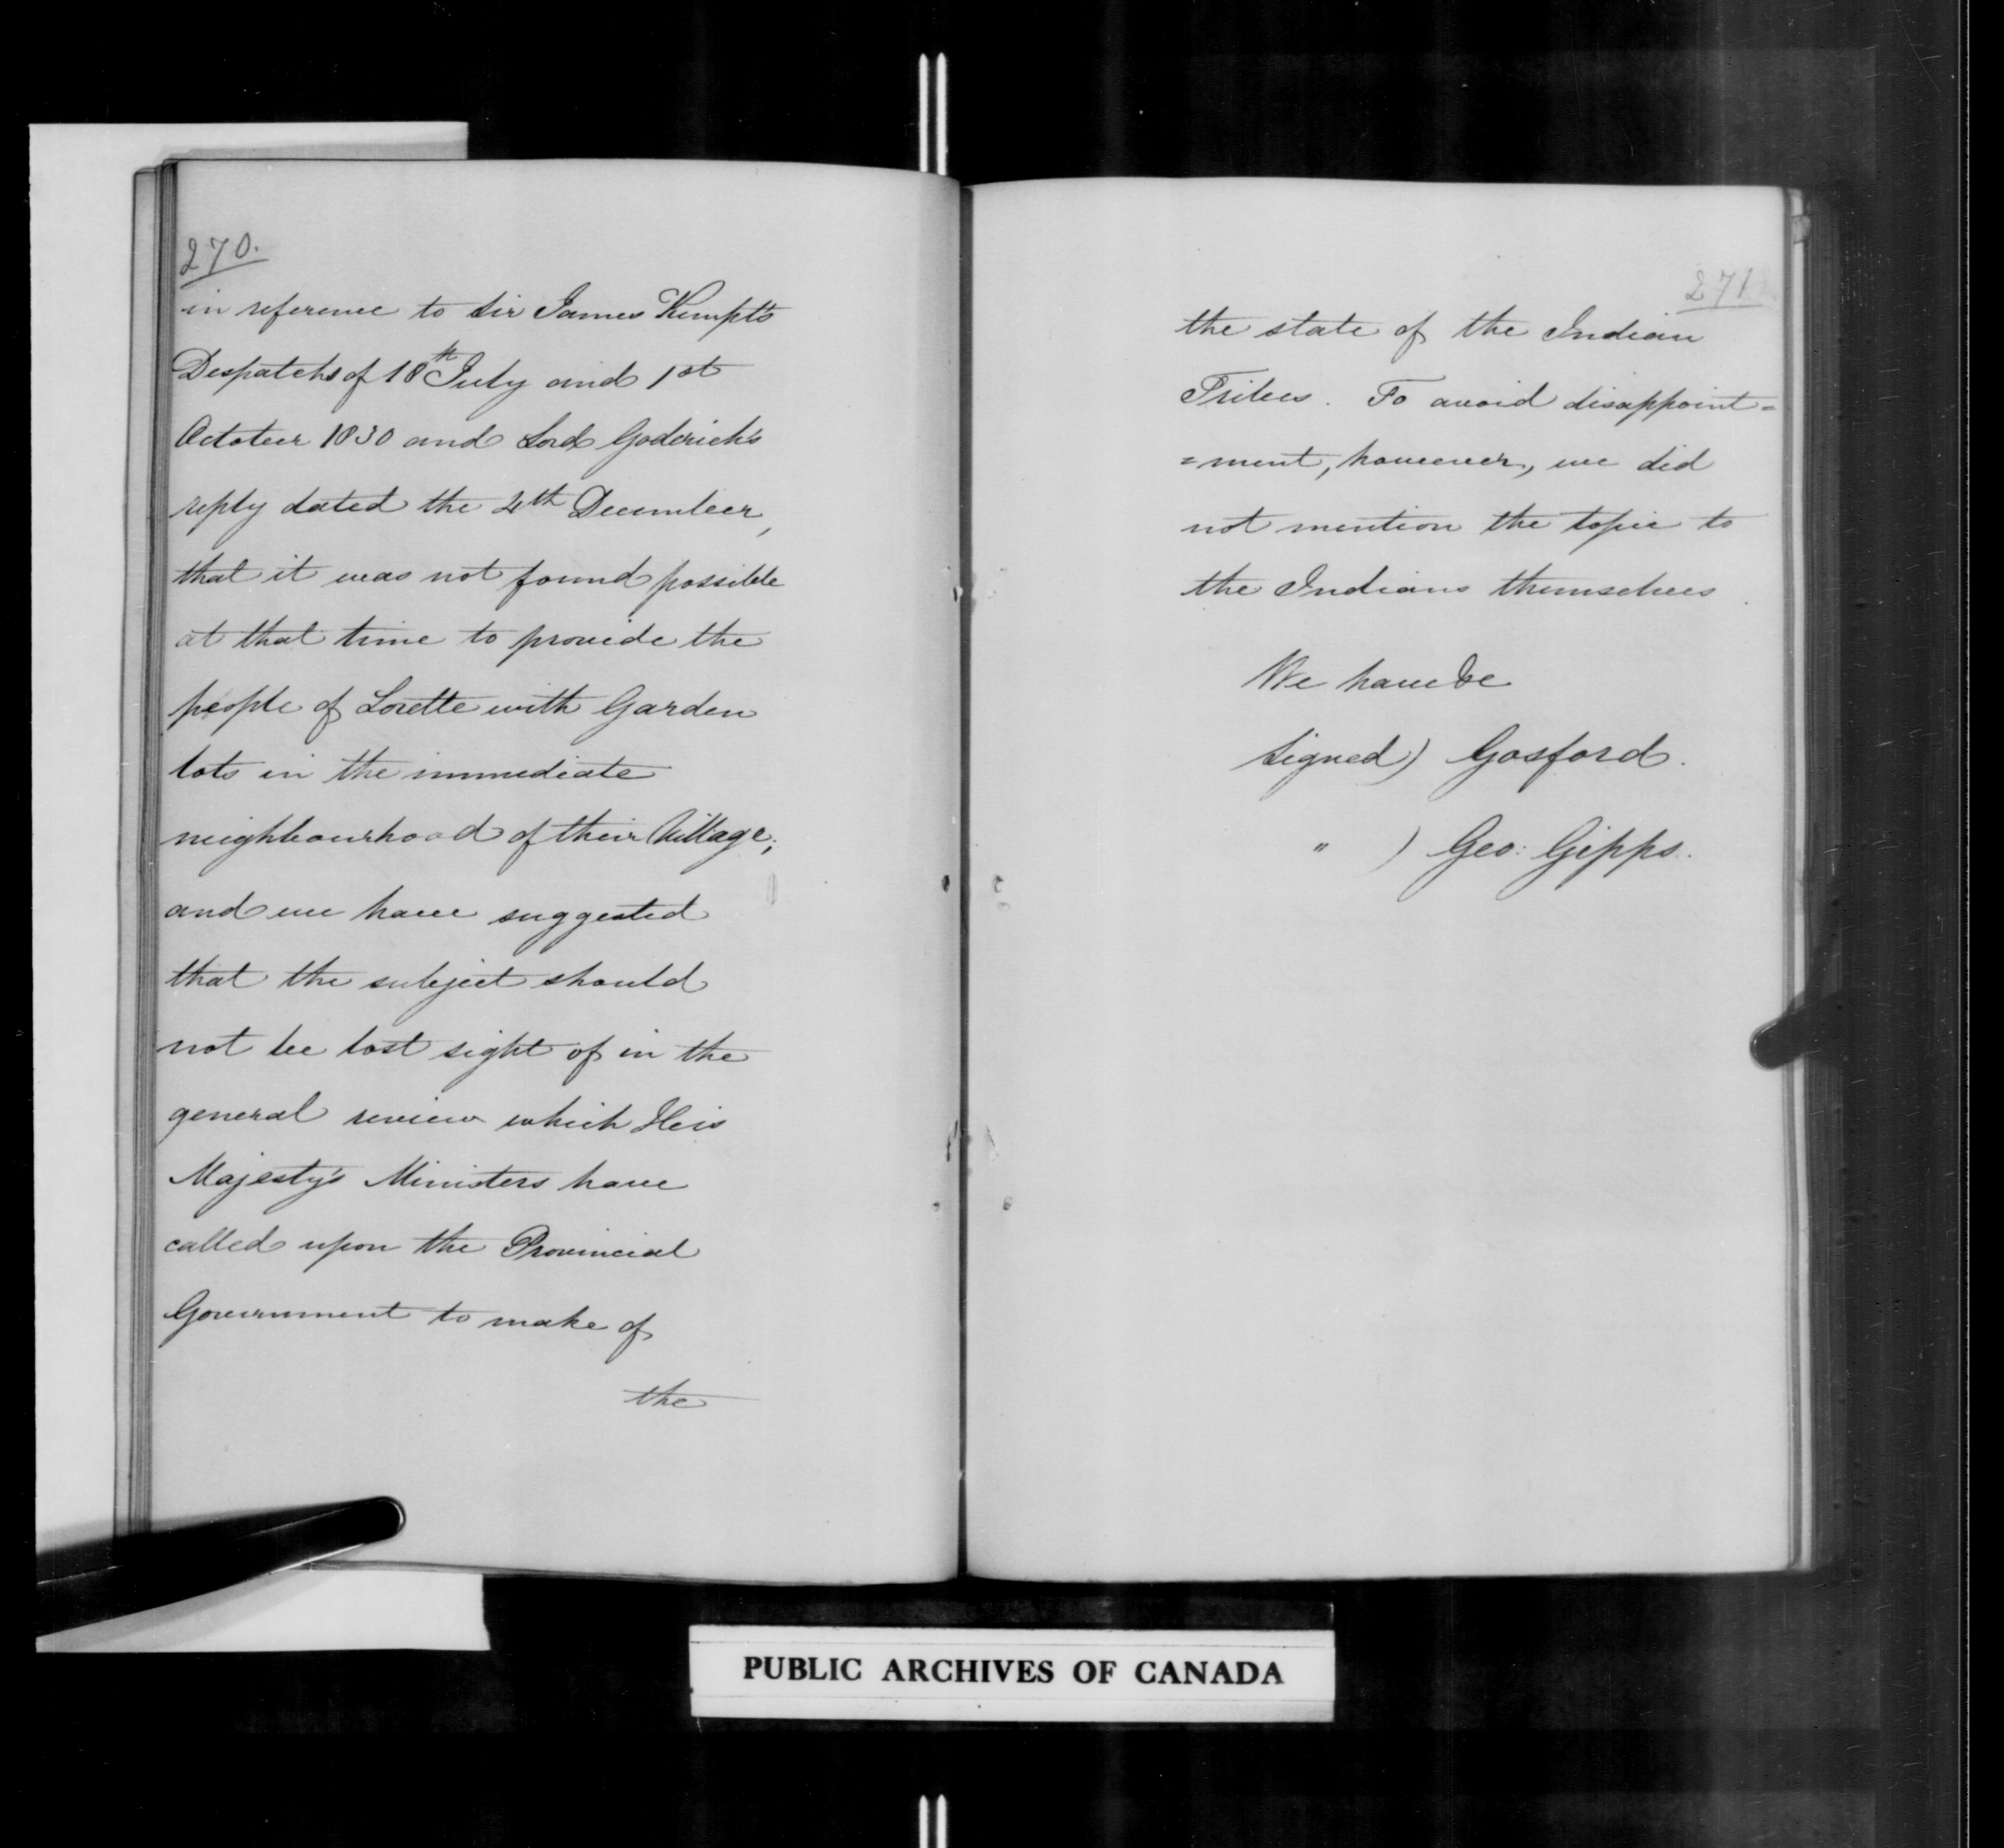 270.
in reference to Sir James Kempt's
Despatchs of 18th July and 1st
October 1830 and Lord Goderich's
reply dated the 4th December,
that it was not found possible
at that time to provide the
people of Lorette with Garden
lots in the immediate
neighbourhood of their Village;
and we have suggested
that the subject should
not be lost sight of in the
general review which His
Majesty's Ministers have
called upon the Provincial
Government to make of
the
271
the state of the Indian
Tribes. To avoid disappoint=
=ment, however, we did
not mention the topic to
the Indians themselves.
We have &c
Signed) Gosford.
" ) Geo: Gipps.
PUBLIC ARCHIVES OF CANADA